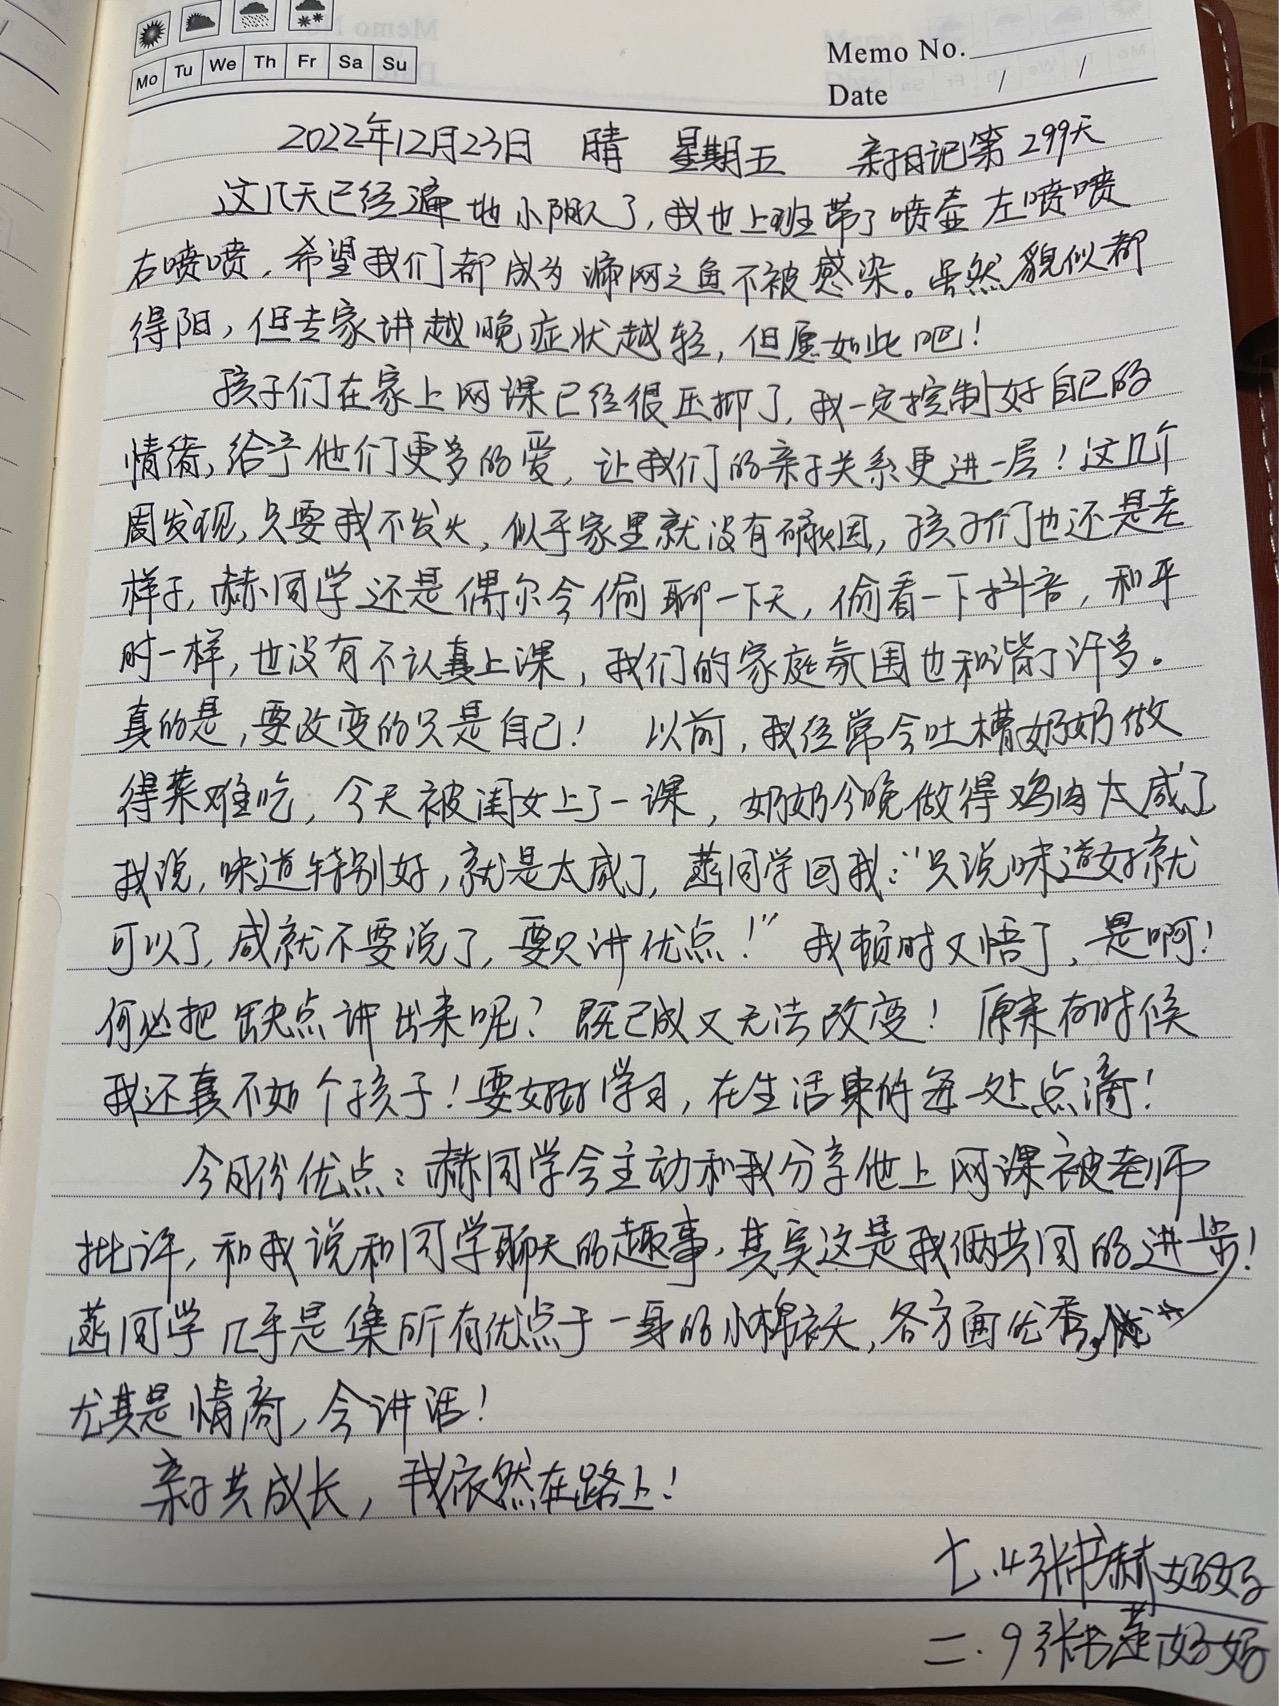 Mo Tu We Th Fr Sa Su
Memo No.
Date / /
2022年12月23日 晴 星期五 亲子日记第299天
这几天已经遍地小阳人了,我也上班带了喷壶左喷喷
右喷喷,希望我们都成为漏网之鱼不被感染。虽然貌似都
得阳,但专家讲越晚症状越轻,但愿如此吧!
孩子们在家上网课已经很压抑了,我一定控制好自己的
情绪,给予他们更多的爱,让我们的亲子关系更进一层!这几个
周发现,只要我不发火,似乎家里就没有硝烟,孩子们也还是老
样子,赫同学还是偶尔会偷聊一下天,偷看一下抖音,和平
时一样,也没有不认真上课,我们的家庭氛围也和谐了许多。
真的是,要改变的只是自己! 以前,我经常会吐槽奶奶做
得菜难吃,今天被闺女上了一课,奶奶今晚做得鸡肉太咸了
我说,味道特别好,就是太咸了,菡同学回我:“只说味道好就
可以了,咸就不要说了,要只讲优点!”我顿时又悟了,是啊!
何必把缺点讲出来呢?既已成又无法改变!原来有时候
我还真不如个孩子!要好好学习,在生活里的每一处点滴!
今日份优点:赫同学会主动和我分享他上网课被老师
批评,和我说和同学聊天的趣事,其实这是我俩共同的进步!
菡同学几乎是集所有优点于一身的小棉袄,各方面优秀,
尤其是情商,会讲话!
亲子共成长,我依然在路上!
七.4张书赫妈妈
二.9张书菡妈妈